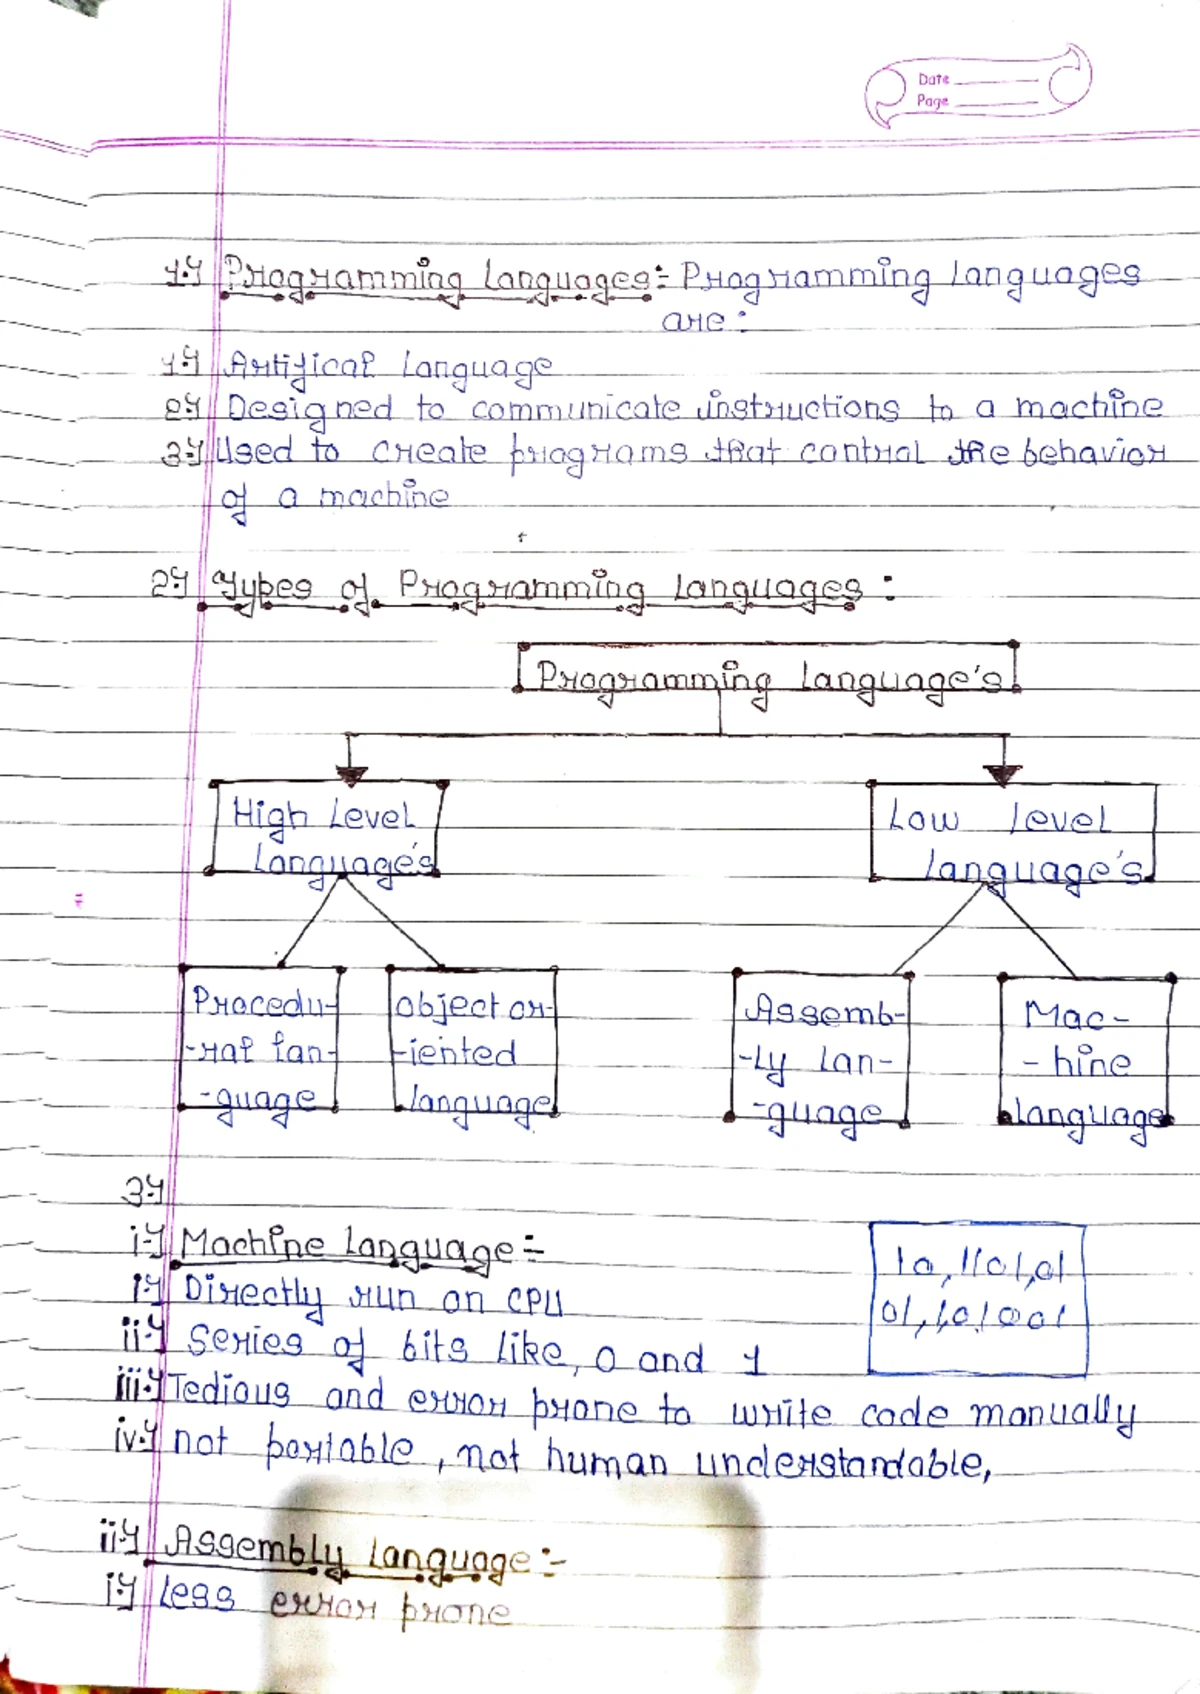 Date
Page
1.) Programming Languages:- Programming Languages
are :
1.) Artifical Language
2.) Designed to communicate instructions to a machine
3.) Used to create programs that control the behavior
of a machine
2.) Types of Programming Languages :
Programming Language's
High Level
Language's
Low Level
Language's
Procedu-
-ral lan-
-guage
object or-
-iented
language
Assemb-
-ly lan-
-guage
Mac-
-hine
language
3.)
i.) Machine Language:-
i.) Directly run on CPU
ii.) Series of bits like, 0 and 1
iii.) Tedious and error prone to write code manually
iv.) not portable, not human understandable,
10, 1101,01
01,1,01001
ii.) Assembly Language:-
i.) Less error prone